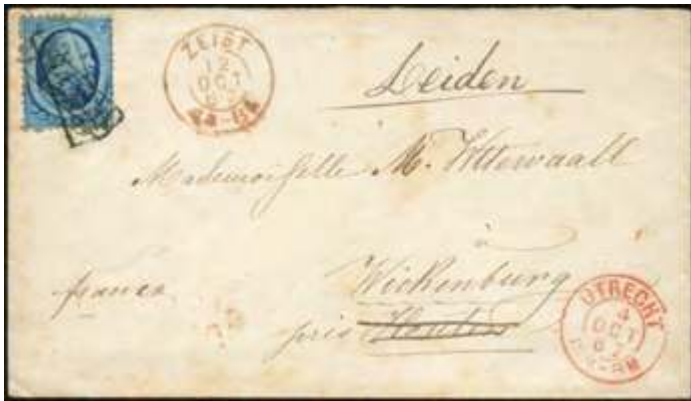 ZEIST
12
OCT
Leiden
Mademoiselle M. Wttewaall
à
Wickenburg
franco
près Houten
UTRECHT
4
OCT